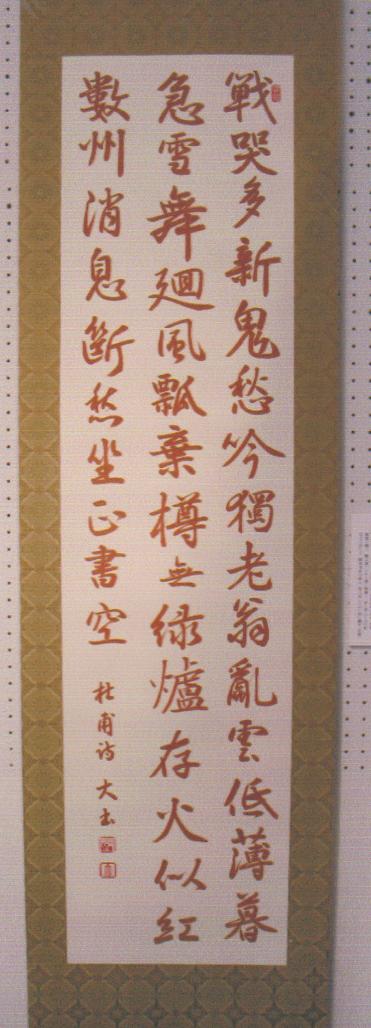 戦哭多新鬼愁吟獨老翁亂雲低薄暮
急雪舞廻風瓢棄樽無緑爐存火似紅
數州消息斷愁坐正書空
杜甫詩 大